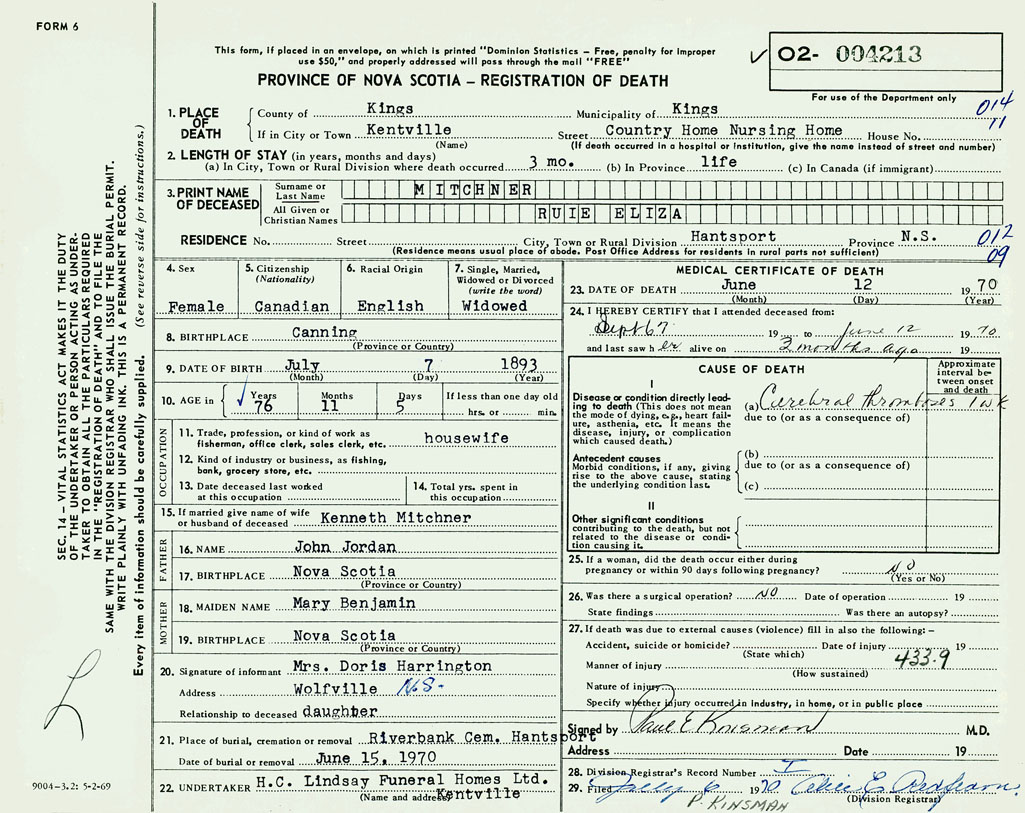 FORM 6
This form, if placed in an envelope, on which is printed "Dominion Statistics – Free, penalty for improper
use $50," and properly addressed will pass through the mail "FREE"
PROVINCE OF NOVA SCOTIA – REGISTRATION OF DEATH
02- 004213
For use of the Department only
014
11
1. PLACE OF DEATH
County of Kings Municipality of Kings
If in City or Town Kentville Street Country Home Nursing Home House No.
(Name) (If death occurred in a hospital or institution, give the name instead of street and number)
2. LENGTH OF STAY (in years, months and days)
(a) In City, Town or Rural Division where death occurred 3 mo. (b) In Province life (c) In Canada (if immigrant)
3. PRINT NAME OF DECEASED
Surname or Last Name MITCHNER
All Given or Christian Names RUIE ELIZA
RESIDENCE No. Street City, Town or Rural Division Hantsport Province N.S.
(Residence means usual place of abode. Post Office Address for residents in rural parts not sufficient)
012
09
4. Sex
Female
5. Citizenship
(Nationality)
Canadian
6. Racial Origin
English
7. Single, Married,
Widowed or Divorced
(write the word)
Widowed
8. BIRTHPLACE Canning
(Province or Country)
9. DATE OF BIRTH July 7 1893
(Month) (Day) (Year)
10. AGE in Years Months Days If less than one day old
76 11 5 hrs. or min.
OCCUPATION
11. Trade, profession, or kind of work as
fisherman, office clerk, sales clerk, etc. housewife
12. Kind of industry or business, as fishing,
bank, grocery store, etc.
13. Date deceased last worked
at this occupation
14. Total yrs. spent in
this occupation
15. If married give name of wife
or husband of deceased Kenneth Mitchner
FATHER
16. NAME John Jordan
17. BIRTHPLACE Nova Scotia
(Province or Country)
MOTHER
18. MAIDEN NAME Mary Benjamin
19. BIRTHPLACE Nova Scotia
(Province or Country)
20. Signature of informant Mrs. Doris Harrington
Address Wolfville N.S.
Relationship to deceased daughter
21. Place of burial, cremation or removal Riverbank Cem. Hantsport
Date of burial or removal June 15, 1970
22. UNDERTAKER H.C. Lindsay Funeral Homes Ltd.
(Name and address) Kentville
MEDICAL CERTIFICATE OF DEATH
23. DATE OF DEATH June 12 1970
(Month) (Day) (Year)
24. I HEREBY CERTIFY that I attended deceased from:
Sept 67 19 to June 12 1970
and last saw her alive on 3 months ago 19
CAUSE OF DEATH
Approximate
interval be-
tween onset
and death
I
Disease or condition directly lead-
ing to death (This does not mean
the mode of dying, e.g., heart fail-
ure, asthenia, etc. It means the
disease, injury, or complication
which caused death.)
(a) Cerebral thromboses 1 wk
due to (or as a consequence of)
Antecedent causes
Morbid conditions, if any, giving
rise to the above cause, stating
the underlying condition last.
(b)
due to (or as a consequence of)
(c)
II
Other significant conditions
contributing to the death, but not
related to the disease or condi-
tion causing it.
25. If a woman, did the death occur either during
pregnancy or within 90 days following pregnancy? NO
(Yes or No)
26. Was there a surgical operation? NO Date of operation 19
State findings Was there an autopsy?
27. If death was due to external causes (violence) fill in also the following: –
Accident, suicide or homicide? Date of injury 19
(State which) 433.9
Manner of injury
(How sustained)
Nature of injury
Specify whether injury occurred in industry, in home, or in public place
Signed by Paul E Kinsman M.D.
Address Date 19
28. Division Registrar's Record Number I
29. Filed July 6 1970
(Division Registrar)
P. KINSMAN
SEC. 14 – VITAL STATISTICS ACT MAKES IT THE DUTY
OF THE UNDERTAKER OR PERSON ACTING AS UNDER-
TAKER TO OBTAIN ALL THE PARTICULARS REQUIRED
IN THE "REGISTRATION OF DEATH" AND TO FILE THE
SAME WITH THE DIVISION REGISTRAR WHO SHALL ISSUE THE BURIAL PERMIT.
WRITE PLAINLY WITH UNFADING INK. THIS IS A PERMANENT RECORD.
Every item of information should be carefully supplied. (See reverse side for instructions.)
9004-3.2: 5-2-69